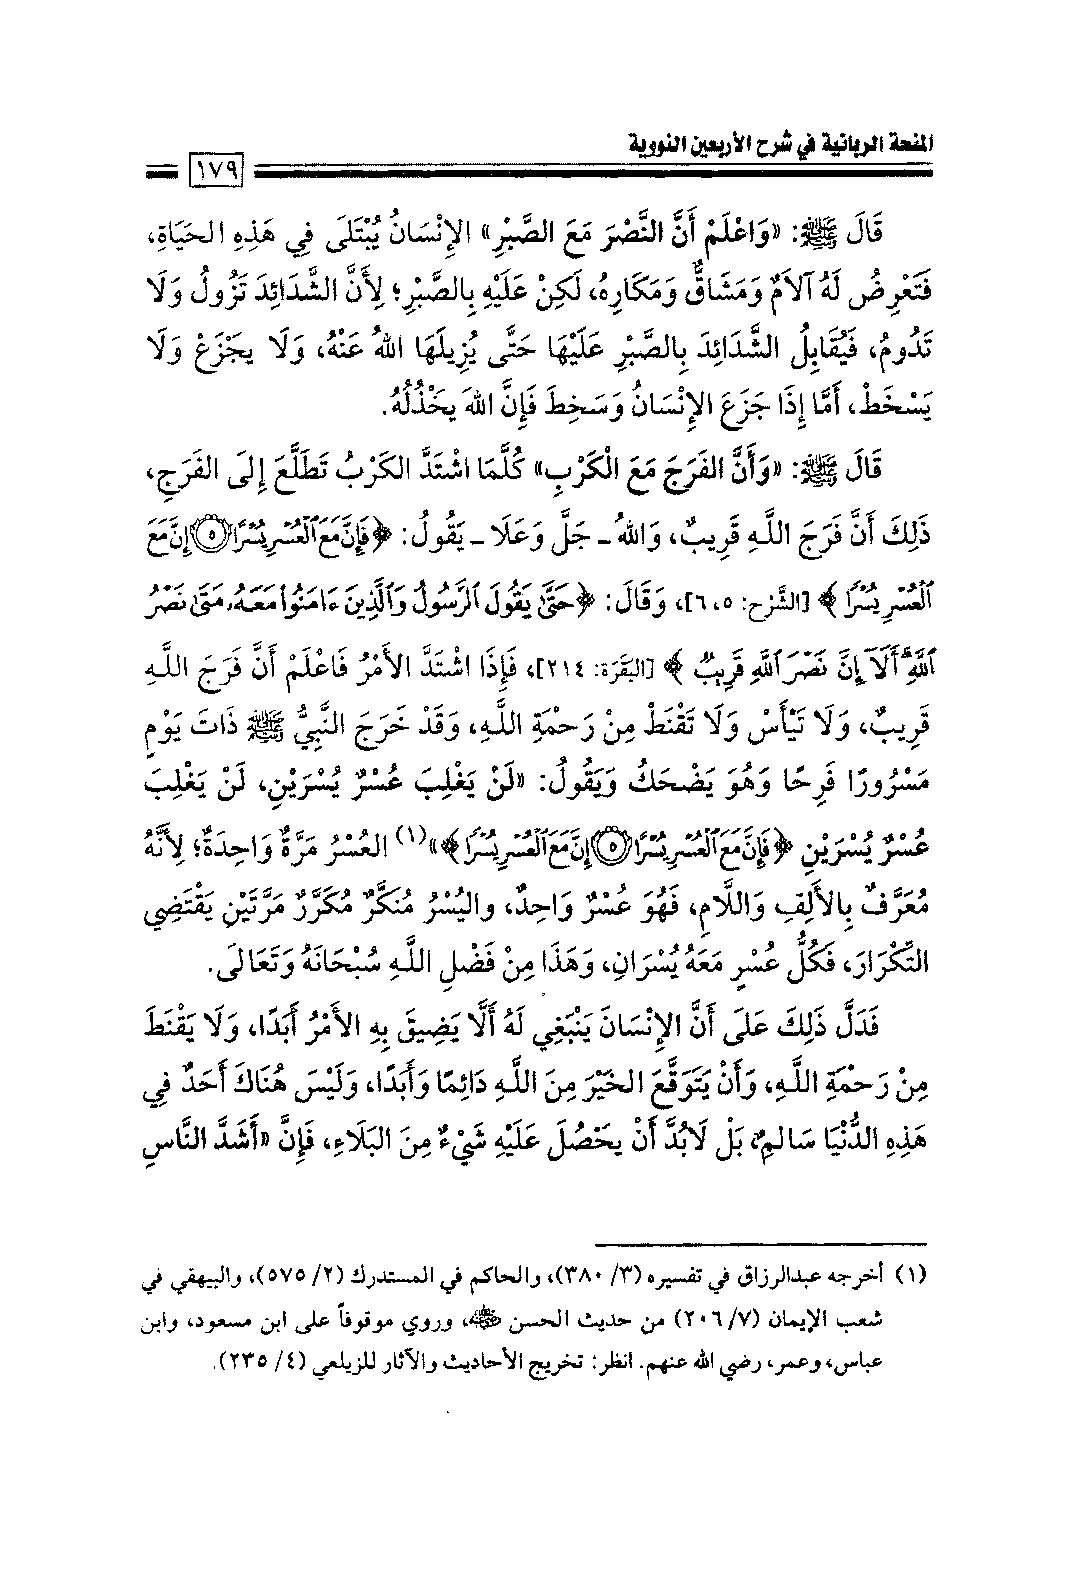 المنحة الربانية في شرح الأربعين النووية
١٧٩
قَالَ ﷺ: «وَاعْلَمْ أَنَّ النَّصْرَ مَعَ الصَّبْرِ» الإِنْسَانُ يُبْتَلَى فِي هَذِهِ الحَيَاةِ،
فَتَعْرِضُ لَهُ آلَامٌ وَمَشَاقٌّ وَمَكَارِهُ، لَكِنْ عَلَيْهِ بِالصَّبْرِ؛ لِأَنَّ الشَّدَائِدَ تَزُولُ وَلَا
تَدُومُ، فَيُقَابِلُ الشَّدَائِدَ بِالصَّبْرِ عَلَيْهَا حَتَّى يُزِيلَهَا اللهُ عَنْهُ، وَلَا يَجْزَعْ وَلَا
يَسْخَطْ، أَمَّا إِذَا جَزَعَ الإِنْسَانُ وَسَخِطَ فَإِنَّ اللهَ يَخْذُلُهُ.
قَالَ ﷺ: «وَأَنَّ الفَرَجَ مَعَ الْكَرْبِ» كُلَّمَا اشْتَدَّ الكَرْبُ تَطَلَّعَ إِلَى الفَرَجِ،
ذَلِكَ أَنَّ فَرَجَ اللَّهِ قَرِيبٌ، وَاللهُ ـ جَلَّ وَعَلَا ـ يَقُولُ: ﴿فَإِنَّ مَعَ ٱلْعُسْرِ يُسْرًا ۝٥ إِنَّ مَعَ
ٱلْعُسْرِ يُسْرًا﴾ [الشَّرْحِ: ٥، ٦]، وَقَالَ: ﴿حَتَّىٰ يَقُولَ ٱلرَّسُولُ وَٱلَّذِينَ ءَامَنُوا۟ مَعَهُۥ مَتَىٰ نَصْرُ
ٱللَّهِ ۗ أَلَآ إِنَّ نَصْرَ ٱللَّهِ قَرِيبٌ﴾ [البَقَرَة: ٢١٤]، فَإِذَا اشْتَدَّ الأَمْرُ فَاعْلَمْ أَنَّ فَرَجَ اللَّهِ
قَرِيبٌ، وَلَا تَيْأَسْ وَلَا تَقْنَطْ مِنْ رَحْمَةِ اللَّهِ، وَقَدْ خَرَجَ النَّبِيُّ ﷺ ذَاتَ يَوْمٍ
مَسْرُورًا فَرِحًا وَهُوَ يَضْحَكُ وَيَقُولُ: «لَنْ يَغْلِبَ عُسْرٌ يُسْرَيْنِ، لَنْ يَغْلِبَ
عُسْرٌ يُسْرَيْنِ ﴿فَإِنَّ مَعَ ٱلْعُسْرِ يُسْرًا ۝٥ إِنَّ مَعَ ٱلْعُسْرِ يُسْرًا﴾»(١) العُسْرُ مَرَّةٌ وَاحِدَةٌ؛ لِأَنَّهُ
مُعَرَّفٌ بِالأَلِفِ وَاللَّامِ، فَهُوَ عُسْرٌ وَاحِدٌ، والْيُسْرُ مُنَكَّرٌ مُكَرَّرٌ مَرَّتَيْنِ يَقْتَضِي
التَّكْرَارَ، فَكُلُّ عُسْرٍ مَعَهُ يُسْرَانِ، وَهَذَا مِنْ فَضْلِ اللَّهِ سُبْحَانَهُ وَتَعَالَى.
فَدَلَّ ذَلِكَ عَلَى أَنَّ الإِنْسَانَ يَنْبَغِي لَهُ أَلَّا يَضِيقَ بِهِ الأَمْرُ أَبَدًا، وَلَا يَقْنَطَ
مِنْ رَحْمَةِ اللَّهِ، وَأَنْ يَتَوَقَّعَ الخَيْرَ مِنَ اللَّهِ دَائِمًا وَأَبَدًا، وَلَيْسَ هُنَاكَ أَحَدٌ فِي
هَذِهِ الدُّنْيَا سَالِمٌ، بَلْ لَابُدَّ أَنْ يَحْصُلَ عَلَيْهِ شَيْءٌ مِنَ البَلَاءِ، فَإِنَّ «أَشَدَّ النَّاسِ
(١) أخرجه عبدالرزاق في تفسيره (٣/ ٣٨٠)، والحاكم في المستدرك (٢/ ٥٧٥)، والبيهقي في
شعب الإيمان (٧/ ٢٠٦) من حديث الحسن رضي الله عنه، وروي موقوفاً على ابن مسعود، وابن
عباس، وعمر، رضي الله عنهم. انظر: تخريج الأحاديث والآثار للزيلعي (٤/ ٢٣٥).